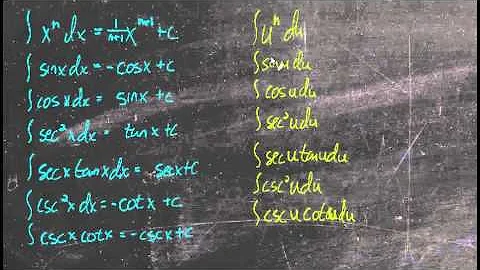 ∫xⁿdx = 1/(n+1) xⁿ⁺¹ + c
∫sinxdx = -cosx + c
∫cosxdx = sinx + c
∫sec²xdx = tanx + c
∫secxtanxdx = secx + c
∫csc²xdx = -cotx + c
∫cscxcotx = -cscx + c
∫uⁿdu
∫sinudu
∫cosudu
∫sec²udu
∫secutanudu
∫csc²udu
∫cscucotudu